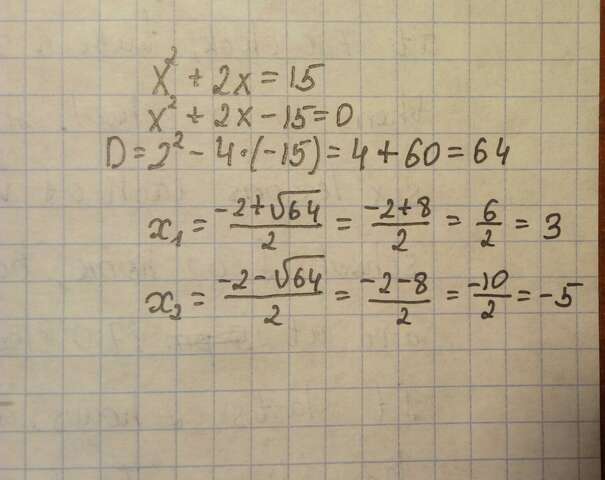 x² + 2x = 15
x² + 2x - 15 = 0
D = 2² - 4·(-15) = 4 + 60 = 64
x₁ = (-2+√64)/2 = (-2+8)/2 = 6/2 = 3
x₂ = (-2-√64)/2 = (-2-8)/2 = -10/2 = -5